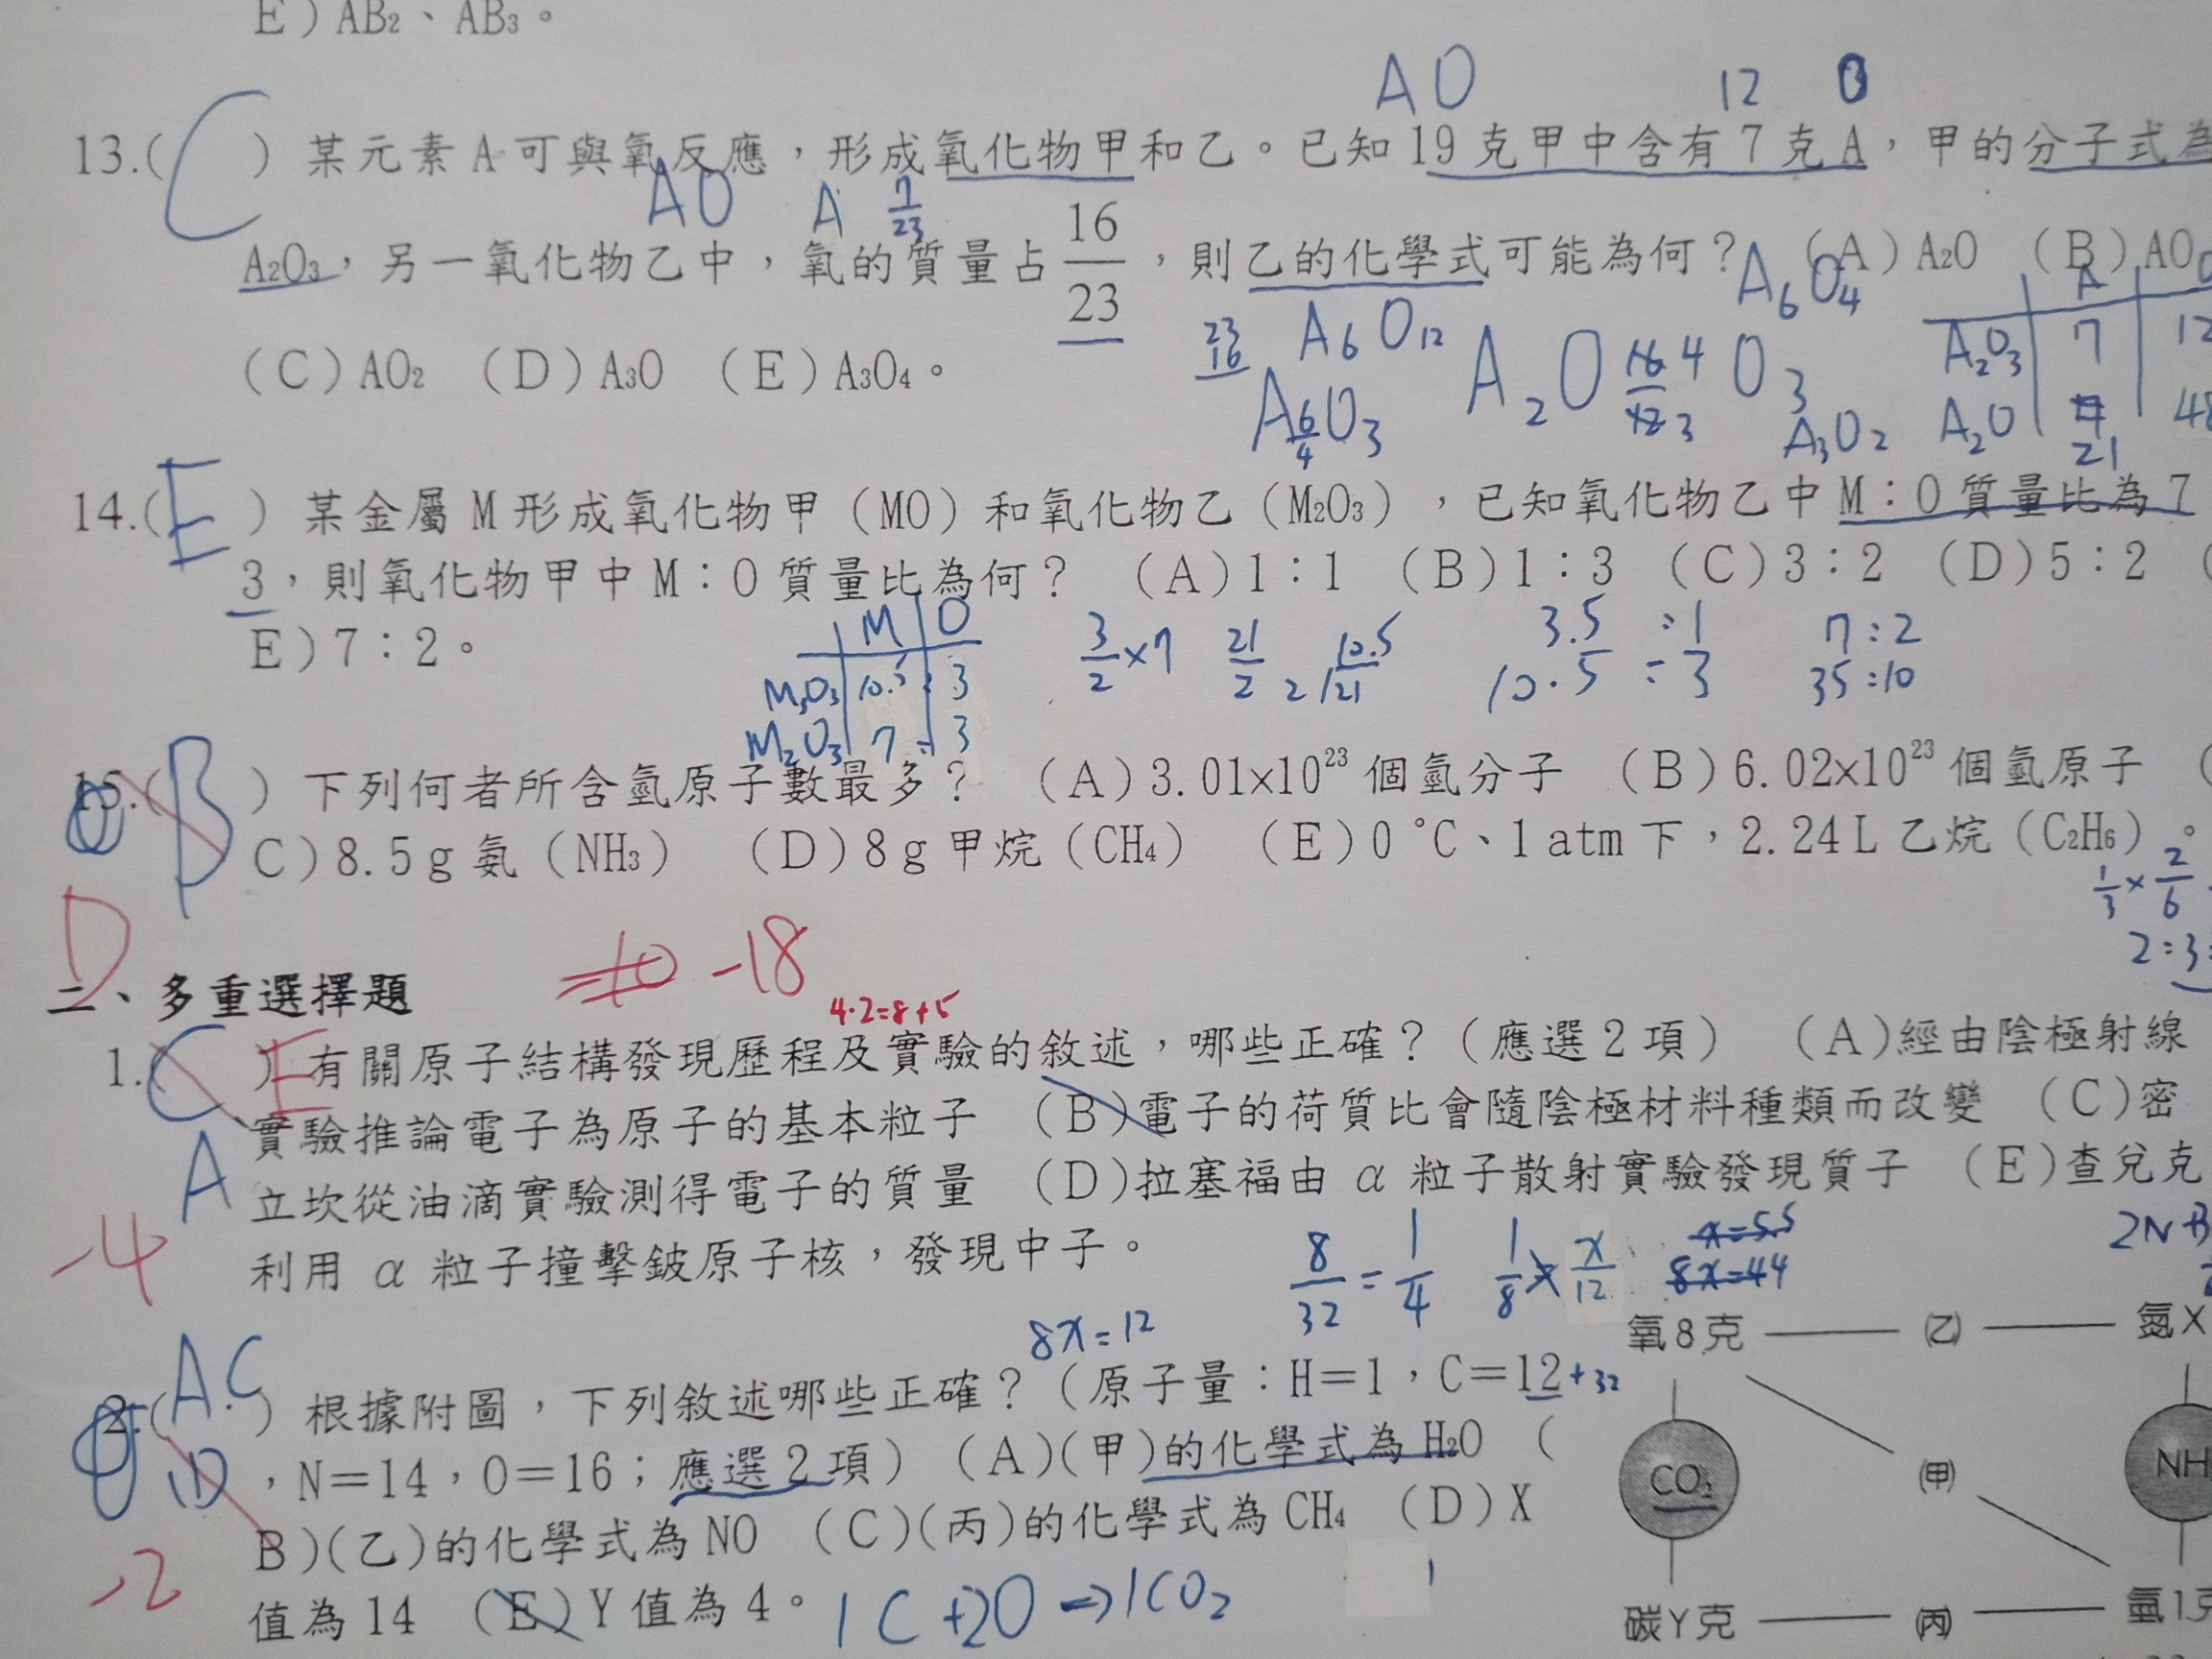 E)AB₂、AB₃。
AO 12 O
13.( C ) 某元素A可與氧反應，形成氧化物甲和乙。已知19克甲中含有7克A，甲的分子式為
AO A 7/23
A₂O₃，另一氧化物乙中，氧的質量占 16/23 ，則乙的化學式可能為何？ (A)A₂O (B)AO
A₆O₄ A O
23 16 A₆O₁₂ A₂O 16/12 4/3 O₃ A₂O₃ 7 12
(C)AO₂ (D)A₃O (E)A₃O₄。
A6/4O₃ A₃O₂ A₂O 21 48
14.( E ) 某金屬M形成氧化物甲(MO)和氧化物乙(M₂O₃)，已知氧化物乙中M：O質量比為7
3，則氧化物甲中M：O質量比為何？ (A)1：1 (B)1：3 (C)3：2 (D)5：2 (
E)7：2。
M O 3/2×7 21/2 2/21 10.5 3.5:1 7:2
M₃O₃ 10.5:3 10.5:3 35:10
M₂O₃ 7:3
15.( B ) 下列何者所含氫原子數最多？ (A)3.01x10²³個氫分子 (B)6.02x10²³個氫原子 (
C)8.5g氨(NH₃) (D)8g甲烷(CH₄) (E)0℃、1atm下，2.24L乙烷(C₂H₆)。
1/3×2/6
2:3
D
-10 -18
二、多重選擇題
4·2=8+5
1.( C E ) 有關原子結構發現歷程及實驗的敘述，哪些正確？(應選2項) (A)經由陰極射線
實驗推論電子為原子的基本粒子 (B)電子的荷質比會隨陰極材料種類而改變 (C)密
A
立坎從油滴實驗測得電子的質量 (D)拉塞福由α粒子散射實驗發現質子 (E)查兌克
-4
利用α粒子撞擊鈹原子核，發現中子。
8/32=1/4 1/8 x/12 x=5.5 8x=44
8x=12
氧8克 (乙) 氮X
A.C
2.( D ) 根據附圖，下列敘述哪些正確？(原子量：H=1，C=12+32
，N=14，O=16；應選2項) (A)(甲)的化學式為H₂O (
CO₂ (甲) NH
B)(乙)的化學式為NO (C)(丙)的化學式為CH₄ (D)X
-2
值為14 (E)Y值為4。 1C+2O→1CO₂
碳Y克 (丙) 氫1克